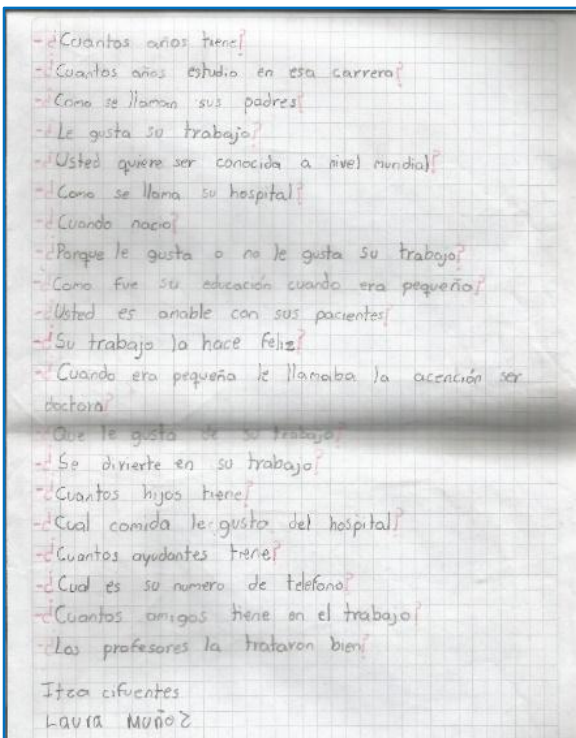 -¿Cuantos años tiene?
-¿Cuantos años estudio en esa carrera?
-¿Como se llaman sus padres?
-¿Le gusta su trabajo?
-¿Usted quiere ser conocida a nivel mundial?
-¿Como se llama su hospital?
-¿Cuando nacio?
-¿Porque le gusta o no le gusta su trabajo?
-¿Como fue su educación cuando era pequeña?
-¿Usted es amable con sus pacientes?
-¿Su trabajo la hace feliz?
-¿Cuando era pequeña le llamaba la acención ser
doctora?
-¿Que le gusta de su trabajo?
-¿Se divierte en su trabajo?
-¿Cuantos hijos tiene?
-¿Cual comida le gusta del hospital?
-¿Cuantos ayudantes tiene?
-¿Cual es su numero de telefono?
-¿Cuantos amigos tiene en el trabajo?
-¿Los profesores la trataron bien?
Itza cifuentes
Laura Muñoz